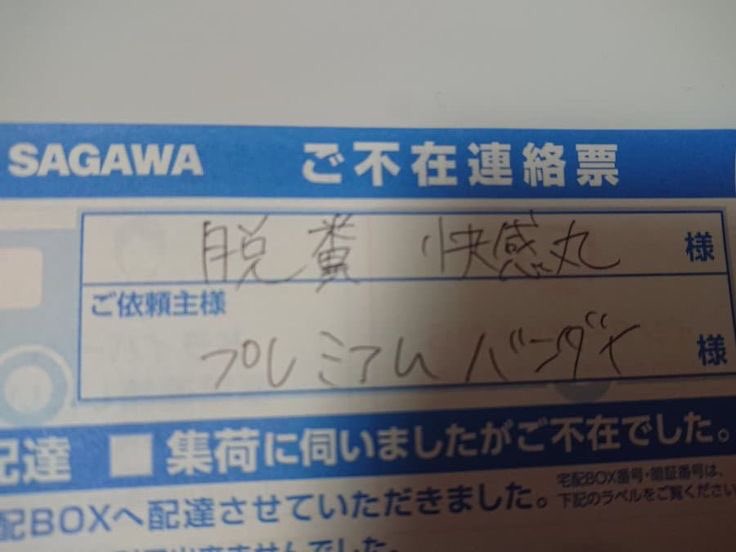 SAGAWA ご不在連絡票
脱糞 快感丸 様
ご依頼主様
プレミアム バンダイ 様
配達 ■ 集荷に伺いましたがご不在でした。
配BOXへ配達させていただきました。
宅配BOX番号・暗証番号は、
下記のラベルをご覧ください